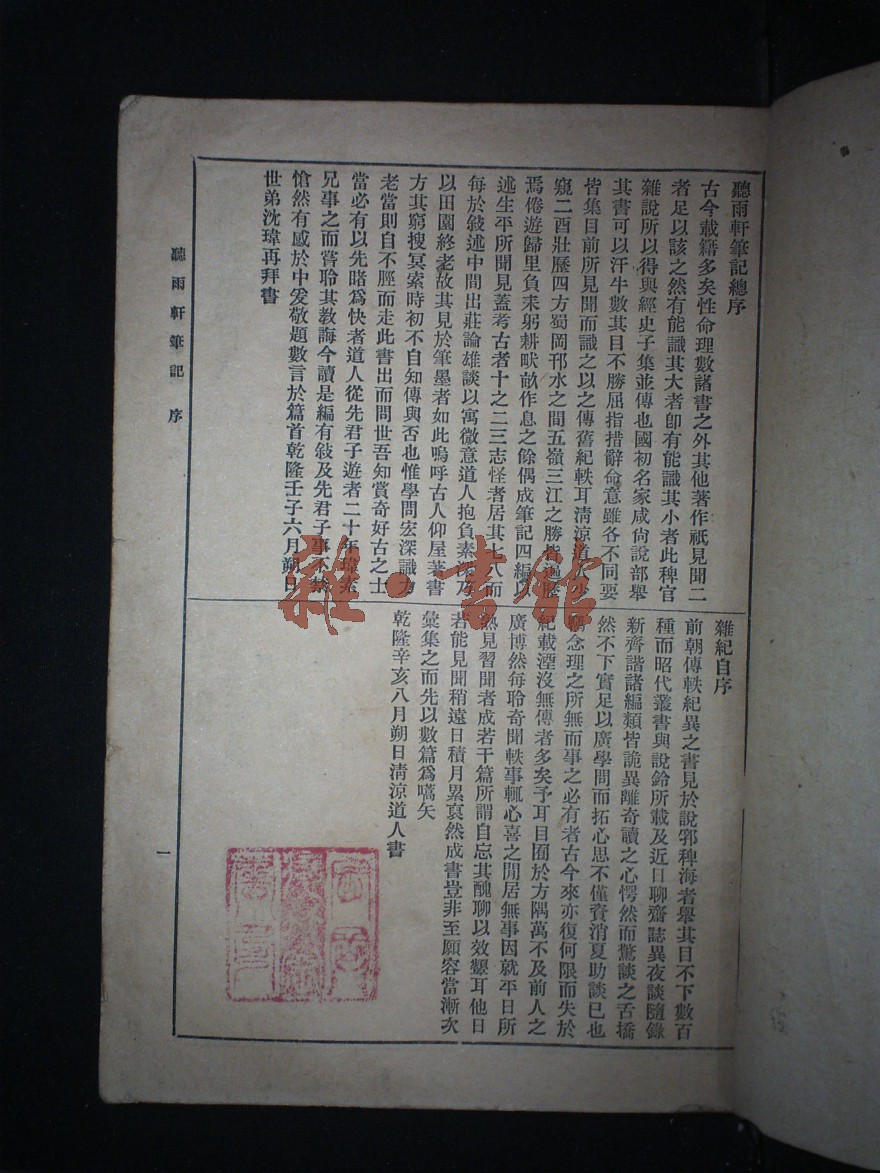 聽雨軒筆記總序
古今載籍多矣性命理數諸書之外其他著作祇見聞二
者足以該之然有能識其大者卽有能識其小者此稗官
雜說所以得與經史子集並傳也國初名家咸尙說部舉
其書可以汗牛數其目不勝屈指措辭命意雖各不同要
皆集目前所見聞而識之以之傳舊紀軼耳淸涼道人少
窺二酉壯歷四方蜀岡邗水之間五嶺三江之勝皆遍歷
焉倦遊歸里負耒躬耕畎畝作息之餘偶成筆記四編以
述生平所聞見蓋考古者十之二三志怪者居其七八而
每於敍述中間出莊論雄談以寓微意道人抱負素深乃
以田園終老故其見於筆墨者如此嗚呼古人仰屋著書
方其窮搜冥索時初不自知傳與否也惟學問宏深識力
老當則自不脛而走此書出而問世吾知賞奇好古之士
當必有以先睹爲快者道人從先君子遊者二十年瑋素
兄事之而嘗聆其敎誨今讀是編有敍及先君子事不禁
愴然有感於中爰敬題數言於篇首乾隆壬子六月朔日
世弟沈瑋再拜書
雜紀自序
前朝傳軼紀異之書見於說郛稗海者舉其目不下數百
種而昭代叢書與說鈴所載及近日聊齋誌異夜談隨錄
新齊諧諸編類皆詭異離奇讀之心愕然而驚談之舌撟
然不下實足以廣學問而拓心思不僅資消夏助談已也
念理之所無而事之必有者古今來亦復何限而失於
紀載湮沒無傳者多矣予耳目囿於方隅萬不及前人之
廣博然每聆奇聞軼事輒心喜之閒居無事因就平日所
熟見習聞者成若干篇所謂自忘其醜聊以效顰耳他日
若能見聞稍遠日積月累裒然成書豈非至願容當漸次
彙集之而先以數篇爲嚆矢
乾隆辛亥八月朔日淸涼道人書
聽雨軒筆記 序
一
雜·書館